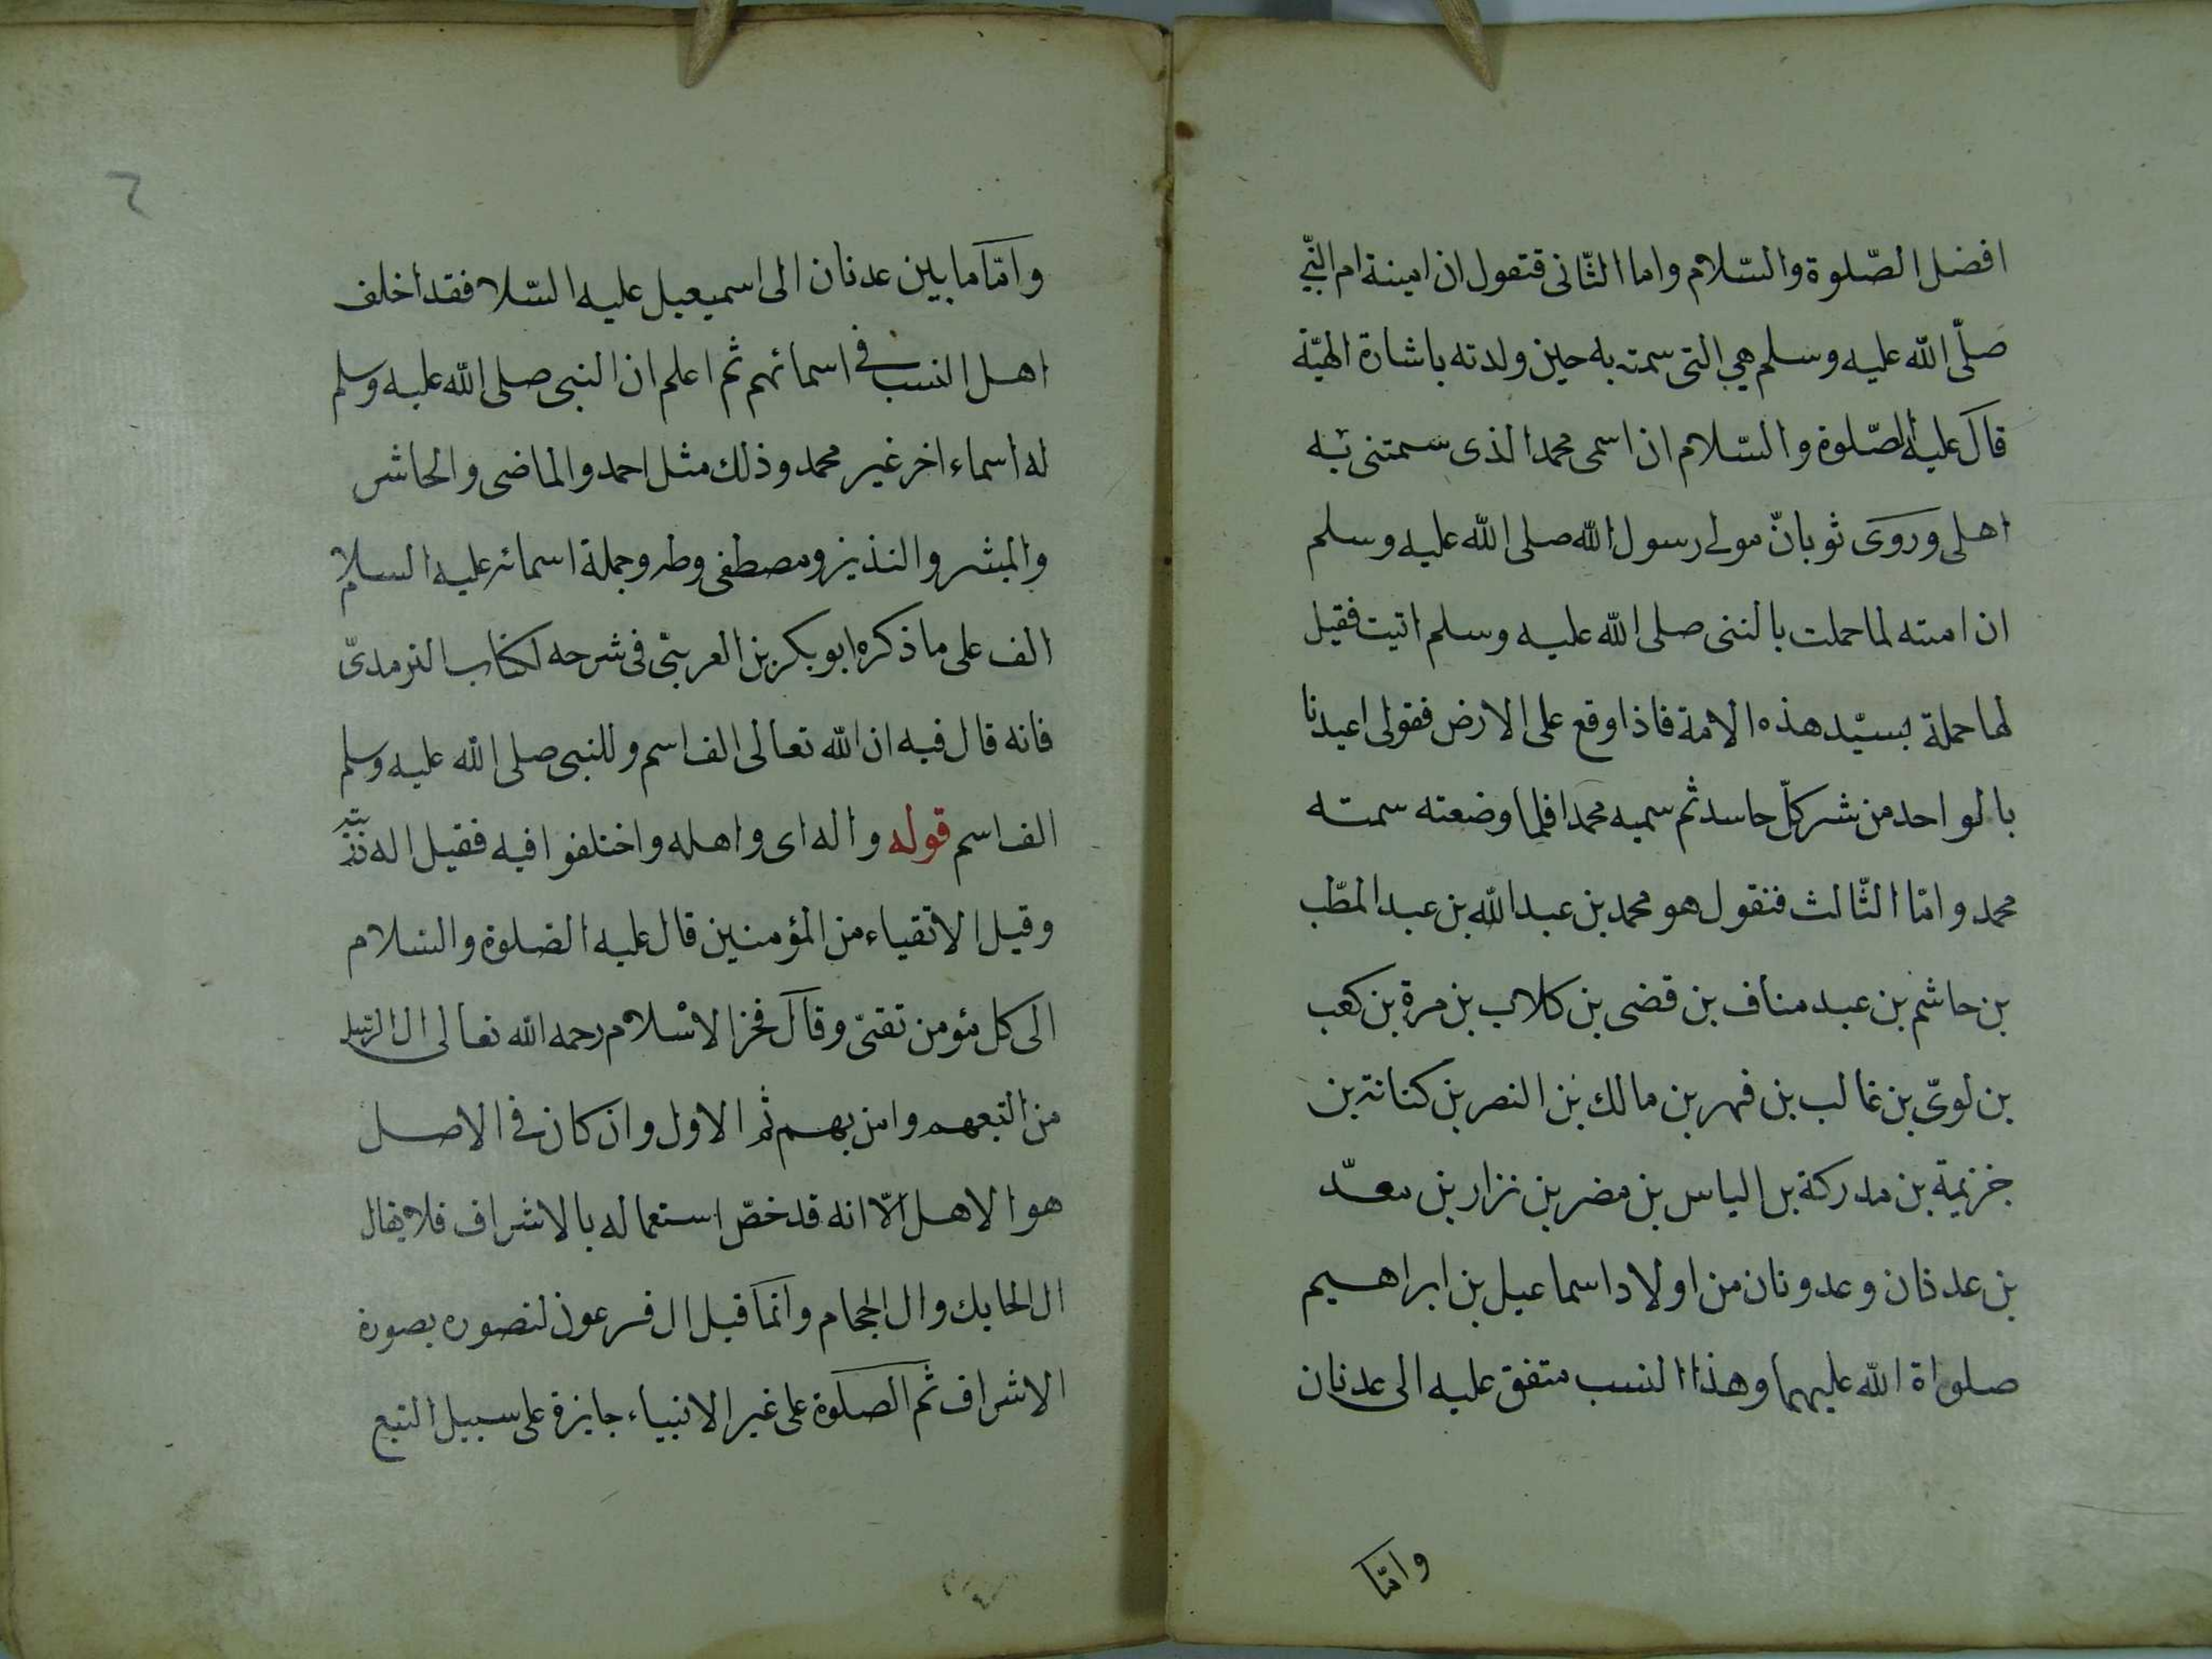 افضل الصّلوة والسّلام واما الثّانى فتقول ان امينة ام النّبي
صلّى الله عليه وسلم هي التى سمته به حين ولدته باشارة الهيّة
قال عليه الصّلوة والسّلام ان اسمى محمد الذى سمتنى به
اهلى وروى ثوبانّ مولى رسول الله صلى الله عليه وسلم
ان امته لما حملت بالنبى صلى الله عليه وسلم اتيت فقيل
لها حملة بسيّد هذه الامة فاذا وقع على الارض فقولى اعيذنا
بالواحد من شر كلّ حاسد ثم سميه محمدا فلما وضعته سمته
محمد وامّا الثّالث فنقول هو محمد بن عبد الله بن عبد المطّب
بن حاشم بن عبد مناف بن قضى بن كلاب بن مرة بن كعب
بن لوىّ بن غالب بن فهر بن مالك بن النصر بن كنانة بن
خزيمة بن مدركة بن الياس بن مضر بن نزار بن معدّ
بن عدنان وعدونان من اولاد اسماعيل بن ابراهيم
صلواة الله عليهما وهذا النسب متفق عليه الى عدنان
وامّا
٦
وامّا ما بين عدنان الى اسميعيل عليه السّلا فقد اخلف
اهل النسب فى اسمائهم ثم اعلم ان النبى صلى الله عليه وسلم
له اسماء اخر غير محمد وذلك مثل احمد والماضى والحاشر
والمبشر والنذيز ومصطفى وطه وجملة اسمائه عليه السلام
الف على ما ذكره ابو بكر بن العربىّ فى شرحه لكتاب الترمدىّ
فانه قال فيه ان الله تعالى الف اسم وللنبى صلى الله عليه وسلم
الف اسم قوله واله اى واهله واختلفوا فيه فقيل اله
وقيل الاتقياء من المؤمنين قال عليه الصلوة والسّلام
الى كل مئومن تقىّ وقال فخر الاسلام رحمه الله تعالى ال الرّسل
من التبعهم وامن بهم ثم الاول وان كان فى الاصل
هو الاهل الّا انه قد خصّ استعماله بالاشراف فلا يقال
ال الحايك وال الحجام وانّما قيل ال فرعون لتصوره بصورة
الاشراف ثم الصلوة على غير الانبياء جايزة على سبيل التبع